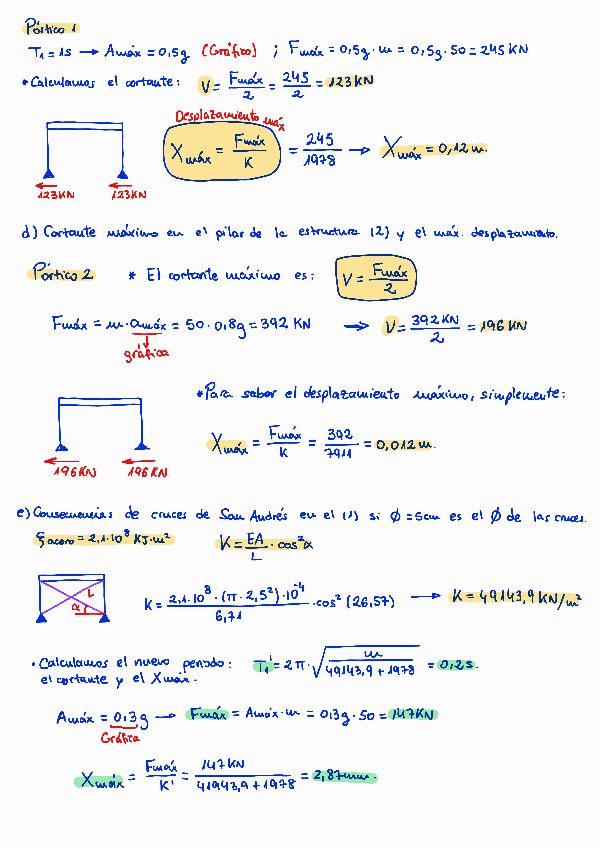 Pórtico 1
T1 = 1s → Amáx = 0,5g (Gráfico) ; Fmáx = 0,5g · m = 0,5g · 50 = 245 KN
* Calculamos el cortante: V = Fmáx/2 = 245/2 = 123 KN
Desplazamiento máx
Xmáx = Fmáx/K = 245/1978 → Xmáx = 0,12 m.
123 KN 123 KN
d) Cortante máximo en el pilar de la estructura (2) y el máx. desplazamiento.
Pórtico 2 * El cortante máximo es: V = Fmáx/2
Fmáx = m · amáx = 50 · 0,8g = 392 KN → V = 392 KN/2 = 196 KN
gráfica
* Para saber el desplazamiento máximo, simplemente:
Xmáx = Fmáx/K = 392/7911 = 0,012 m.
196 KN 196 KN
e) Consecuencias de cruces de San Andrés en el (1) si Ø = 5cm es el Ø de las cruces.
ξacero = 2,1·10⁸ KJ·m² K = EA/L · cos²α
L
α
K = 2,1·10⁸ · (π · 2,5²)·10⁻⁴/6,71 · cos² (26,57) → K = 49143,9 KN/m²
· Calculamos el nuevo periodo: T1' = 2π · √(m/(49143,9 + 1978)) = 0,2 s.
el cortante y el Xmáx.
Amáx = 0,3g → Fmáx = Amáx · m = 0,3g · 50 = 147 KN
Gráfica
Xmáx = Fmáx/K' = 147 KN/(41943,9 + 1978) = 2,87 mm.